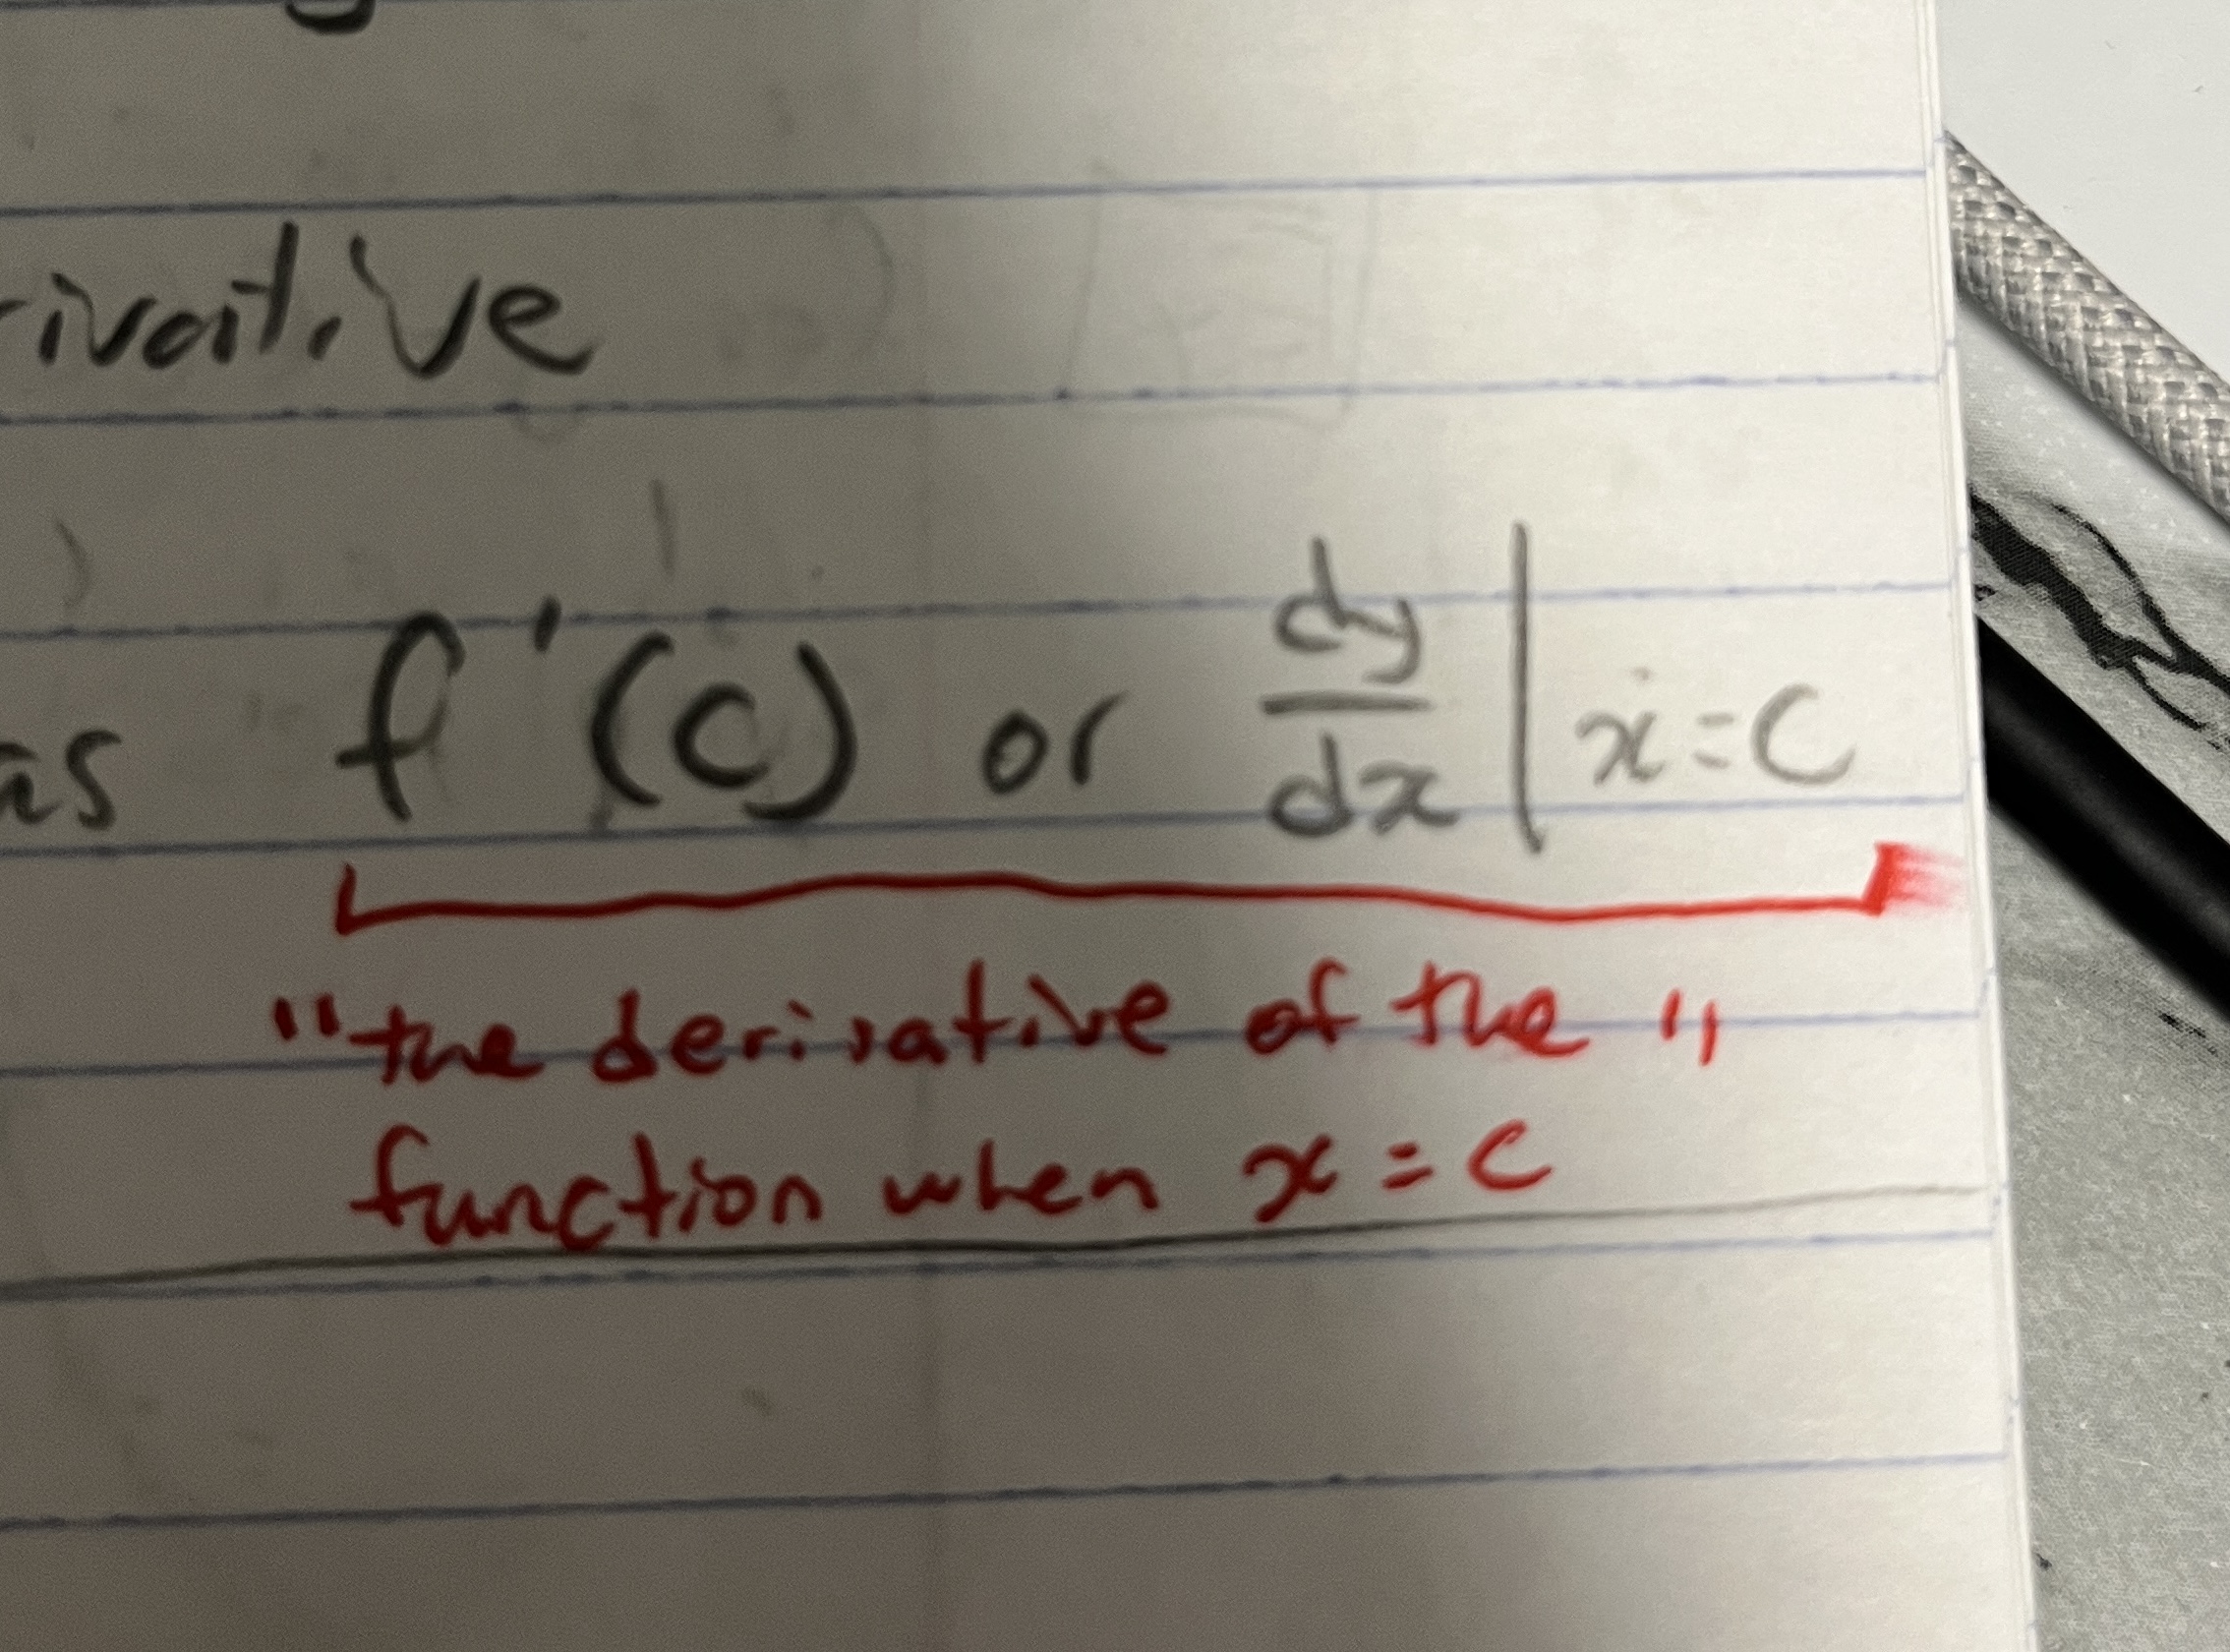 rivative
as f'(c) or dy/dx | x=c
"the derivative of the "
function when x = c